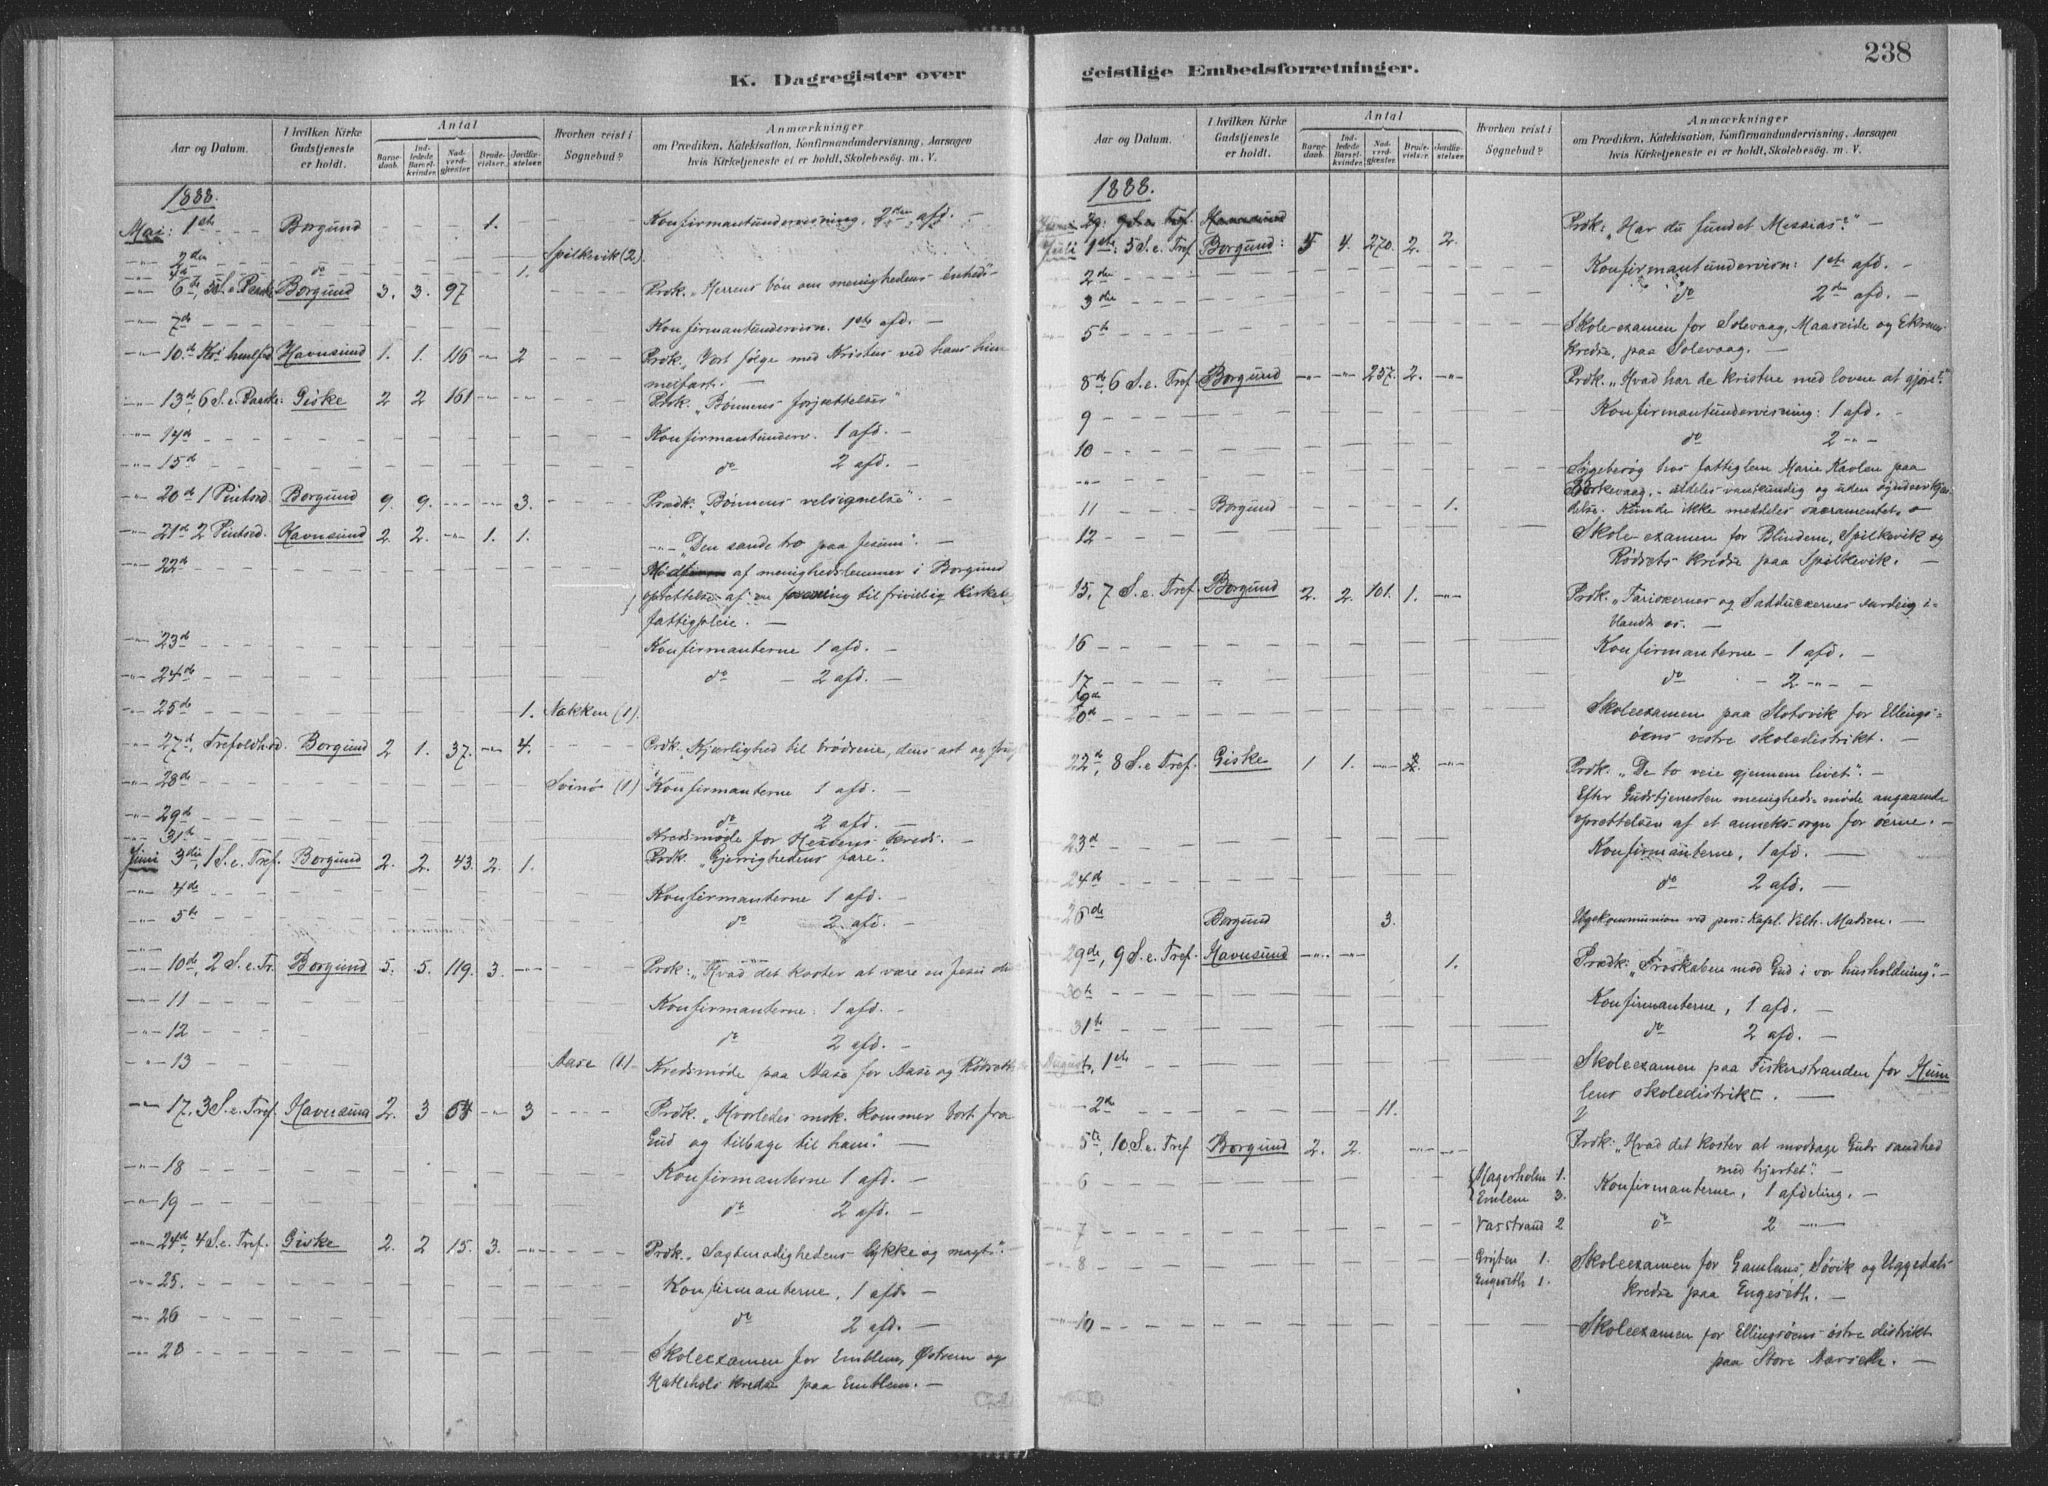 238
K. Dagregister over
Aar og Datum.
I hvilken Kirke Gudstjeneste er holdt.
Antal
Barnedaab.
Indledede Barselkvinder.
Nadverdgjester
Brudevielser.
Jordfæstelser
Hvorhen reist i Sognebud?
Anmærkninger
om Prædiken, Katekisation, Konfirmandundervisning, Aarsagen
hvis Kirketjeneste ei er holdt, Skolebesøg. m. V.
1888.
Mai: 1ste Borgund 1. Konfirmantundervisning, 2den afd. —
2den Spilkevik (2).
4de do 1.
6te, 5 S. e. Paaske Borgund 3. 3. 97 Prdk. „Herrens bøn om menighedens enhed"
7de Konfirmantundervisn. 1ste afd. —
10de Kri himlfd Havnsund 1. 1. 116 2 Prdk. „Vort følge med Kristus ved hans him
melfart. —
13de, 6 S. e. Paaske: Giske 2 2 161 Prdk. „Bønnens forjættelser"
14d Konfirmantunderv. 1 afd. —
15d do 2 afd. —
20d 1 Pintsed. Borgund 9. 9. 3. Prædk. „Bønnens velsignelse". —
21d 2 Pintsed. Havnsund 2. 2. 1. 1. „Den sande tro paa Jesum". —
22d af menighedslemmer i Borgund
oprettelse af en forening til frivillig kirkelig
fattigpleie. —
23d Konfirmanterne 1 afd. —
24d do 2 afd. —
25d 1. Nakken (1).
27d, Trefoldhd. Borgund 2 1. 37. 4. Prdk. „Kjærlighed til brødrene, dens art og
28d Svinø (1) Konfirmanterne 1 afd. —
29d do 2 afd. —
31te Kredsmøde for Hessens kreds. —
Juni 3die, 1 S. e. Tref. Borgund 2. 2. 43. 2. 1. Prdk. „Gjerrighedens fare".
4de Konfirmanterne 1 afd. —
5te do 2 afd. —
10de, 2 S. e. Tr. Borgund 5. 5. 119. 3. Prdk: „Hvad det koster at være en Jesu
11 Konfirmanterne: 1 afd. —
12 do 2 afd. —
13 Aase (1) Kredsmøde paa Aase for Aase og Rødset
17. 3 S. e. Tref. Havnsund 2. 3 3 Prdk. „Hvorledes msk. kommer bort fra
Gud og tilbage til ham". —
18 Konfirmanterne 1 afd. —
19 do 2 afd. —
24d 4 S. e. Tref. Giske 2. 2 15. 3. Prdk. „Sagtmodighedens lykke og magt". —
25. Konfirmanterne, 1 afd. —
26 do 2 afd. —
28 Skoleexamen for Emblem, Østrem og
Hatlehols kredse paa Emblem. —
geistlige Embedsforretninger.
Aar og Datum.
I hvilken Kirke Gudstjeneste er holdt.
Antal
Barnedaab.
Indledede Barselkvinder.
Nadverdgjester
Brudevielser.
Jordfæstelser
Hvorhen reist i Sognebud?
Anmærkninger
om Prædiken, Katekisation, Konfirmandundervisning, Aarsagen
hvis Kirketjeneste ei er holdt, Skolebesøg. m. V.
1888.
Juli 1ste 5 S. e. Tref Borgund: 5 4. 270. 2. 2. Prdk: „Har du fundet Messias?" —
2den Konfirmantundervisn: 1ste afd. —
3die do 2den afd. —
5te Skole-examen for Solevaag, Maaseide og Ekrenes
kredse, paa Solevaag. —
8de 6 S. e. Tref Borgund 257. 2. Prdk. „Hvad har de kristne med loven at gjøre?"
9 Konfirmantundervisning: 1 afd. —
10 do 2 —
Sygebesøg hos fattiglem Marie Kavlen paa
vaag, aldeles vankundig og uden synderkjen
delse. Kunde ikke meddeles sacramentet. —
11 Borgund 1.
12 Skole-examen for Blindem, Spilkevik og
Rødsets kredse paa Spilkevik. —
15, 7 S. e. Tref. Borgund 2. 2. 101. 1. Prdk. „Fariseernes og Sadducæernes surdeig i-
blandt os. —
16 Konfirmanterne – 1 afd. —
17 do – 2 —
19d
20d Skoleexamen paa Stokvik for Ellings-
øens vestre skoledistrikt. —
22d, 8 S. e Tref. Giske 1 1. Prdk. „De to veie gjennem livet". —
Efter Gudstjenesten menigheds-møde angaaende
oprettelsen af et anneks-sogn for øerne. —
23d Konfirmanterne, 1 afd. —
24d do 2 afd. —
26de Borgund 3. Ugekommunion ved pers: Kapl. Vilh. Madsen. —
29de, 9 S. e. Tref. Havnsund 1. Prædk: „Troskaben mod Gud i vor husholdning". —
30te Konfirmanterne, 1 afd. —
31te do 2 afd. —
August, 1ste Skoleexamen paa Fiskerstranden for Hum
lens skoledistrikt. —
2den 11.
5te, 10 S. e. Tref Borgund 2. 2. Prdk: „Hvad det koster at modtage Guds sandhed
med hjertet". —
6 Magerholm 1. Konfirmanterne, 1 afdeling. —
Emlem 3.
7 Vasstrand 2 do 2 —
8 Grysten 1. Skoleexamen for Gamlems, Søvik og Uggedals
Engeseth 1. kredse paa Engeseth. —
10 Skoleexamen for Ellingsøens østre distrikt
paa Store Aarseth. —